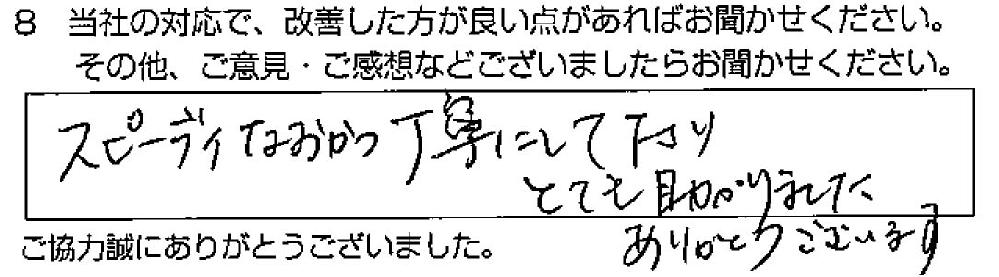 8 当社の対応で、改善した方が良い点があればお聞かせください。
その他、ご意見・ご感想などございましたらお聞かせください。
スピーディなおかつ丁寧にして下さり
とても助かりました
ご協力誠にありがとうございました。
ありがとうございます